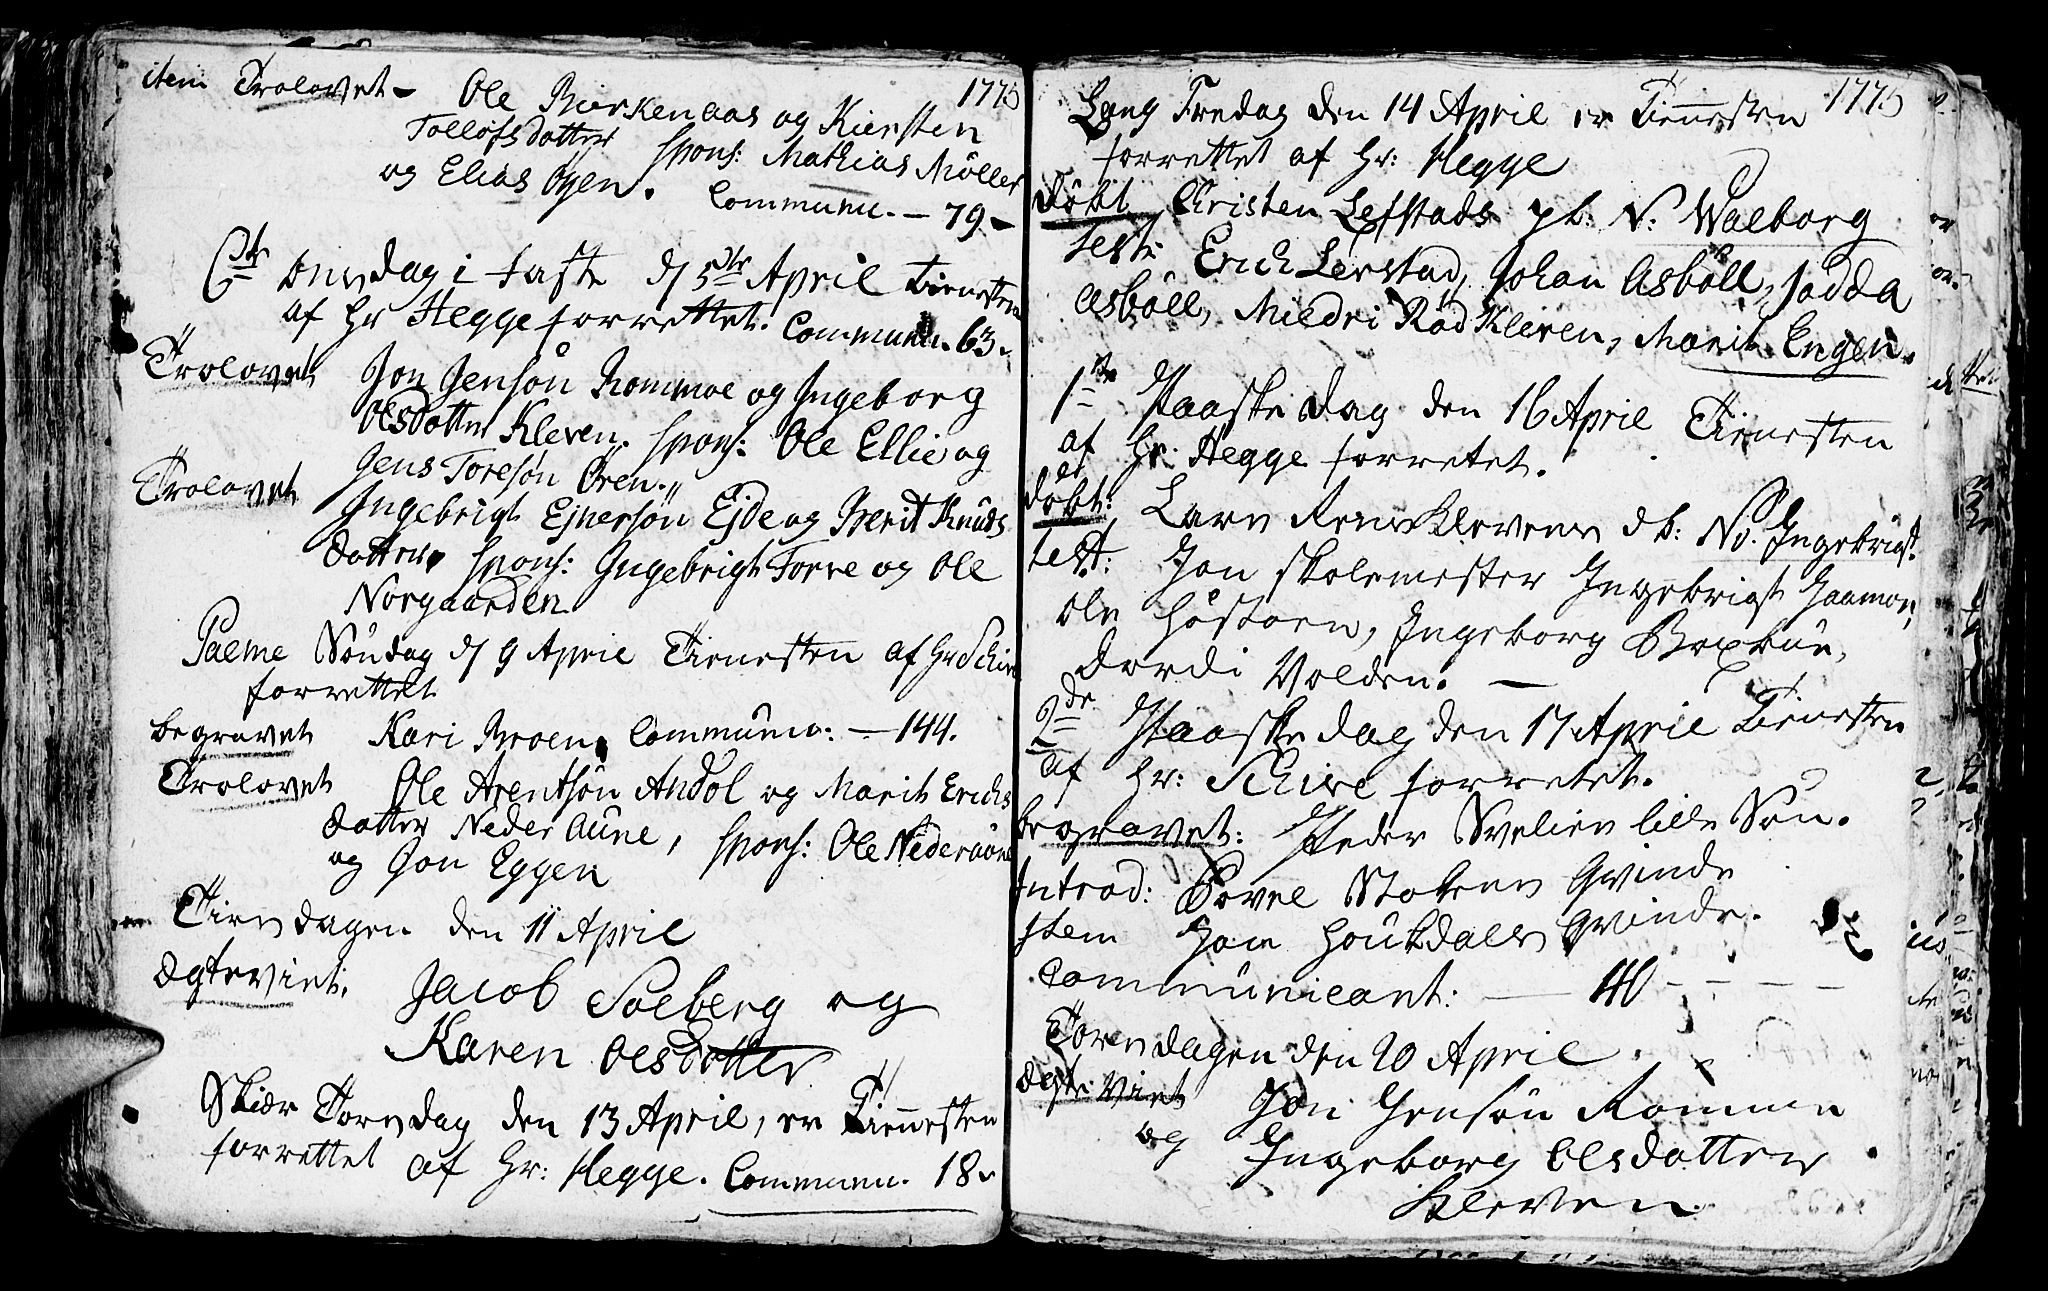 item Trolovet – Ole Birkenaas og Kiersten 1775
Tollofsdatter spons: Mathias Möller
og Elias Öyen. Communic. – 79 –
6te Onsdag i Faste d 5te April Tienesten
af Hr Hegge forrettet. Communic. 63.
Trolovet Jon Jensön Rommoe og Ingeborg
Olsdatter Kleven. spons: Ole Ellie og
Jens Toresön Ören.
Trolovet Ingebrigt Ejnersön Ejde og Berit Knuds
datter. spons: Ingebrigt Torve og Ole
Norgaarden
Palme Söndag d 9 April Tienesten af Hr Schive
forrettet
begravet Kari Broen. Communic: – 144.
Trolovet Ole Arentsön Andol og Marit Erichs
datter Neder Aune, spons: Ole Nederaune
og Jon Eggen
Tirsdagen den 11 April
Ægteviet: Jacob Soeberg og
Karen Olsdotter
Skiær Torsdag den 13 April, er Tienesten
forrettet af Hr: Hegge. Communic. 18.
Lang Fredag den 14 April er Tienesten 1775
forrettet af Hr: Hegge
döbt Christen Lefstads pb. N: Walborg
test: Erich Lerstad, Johan Asböll, Jodda
Asböll, Miedri Röd Kleven, Marit Engen.
1te Paaske Dag den 16 April Tienesten
af Hr. Hegge forretet.
döbt: Lars Klevens db: No. Ingebrigt.
test: Jon Skolemester Ingebrigt
Ole Ingeborg
Dordi Volden. –
2de Paaske dag den 17 April Tienesten
af Hr: Schive forretet.
begravet: Peder Svelien lille Sön.
Introd: Povel Stoken Qvinde
Item Joen Houkdalen Qvinde.
Communicant: – 40 – – – –
Torsdagen den 20 April.
Ægte Viet Jon Jensön Rommen
og Ingeborg Olsdatter
Kleven.